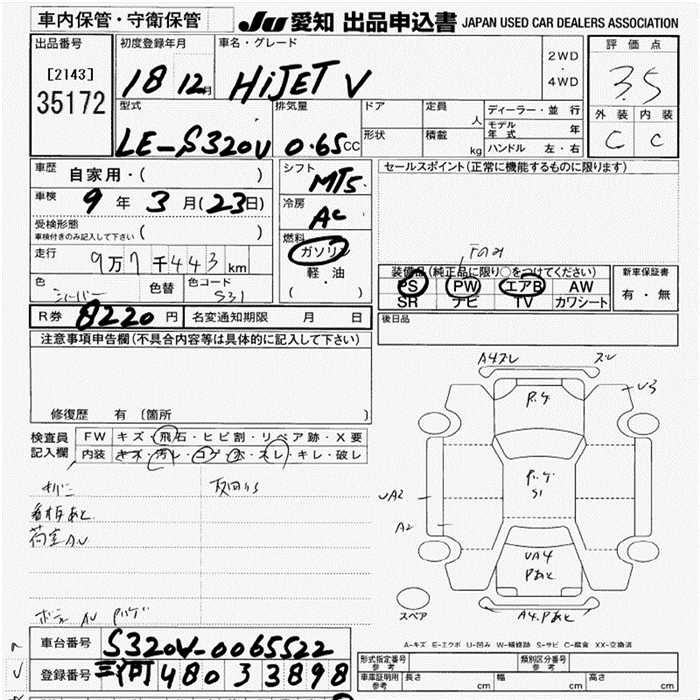 車内保管・守衛保管 JU 愛知 出品申込書 JAPAN USED CAR DEALERS ASSOCIATION
出品番号 初度登録年月 車名・グレード 評価点
[2143] 35172
18 12月 HiJET V 2WD・4WD 3.5
外装 内装
C C
型式 排気量 ドア 定員 人 ディーラー・並行
LE-S320V 0.65cc 形状 積載 kg モデル年式 年
ハンドル 左・右
車歴 自家用・( ) シフト MT5 セールスポイント(正常に機能するものに限ります)
車検 9年 3月 (23日) 冷房 AC
受検形態 ( )
車検付きのみ記入して下さい
燃料 ガソリン
軽・油
( ・ )
走行 9万7千443km
色 シルバー 色替 色コード S31
装備品(純正品に限り○をつけてください) 新車保証書
PS PW エアB AW 有・無
SR ナビ TV カワシート
R券 8220円 名変通知期限 月 日 後日品
注意事項申告欄(不具合内容等は具体的に記入して下さい)
修復歴 有 [箇所 ]
検査員 FW キズ・飛石・ヒビ割・リペア跡・X要
記入欄 内装 キズ・汚レ・コゲ・穴・スレ・キレ・破レ
看板あと
荷室AU
A4ズレ ズレ
P.ゲ
U3
P.ゲ
S1
UA2
A2
UA4
Pあと
A4.Pあと
スペア
A-キズ E-エクボ U-凹み W-補修跡 S-サビ C-腐食 XX-交換済
車台番号 S320V-0065522
登録番号 三河 480 う 3898
形式指定番号 参考 類別区分番号 参考
車庫証明用 参考 長さ cm 幅 cm 高さ cm